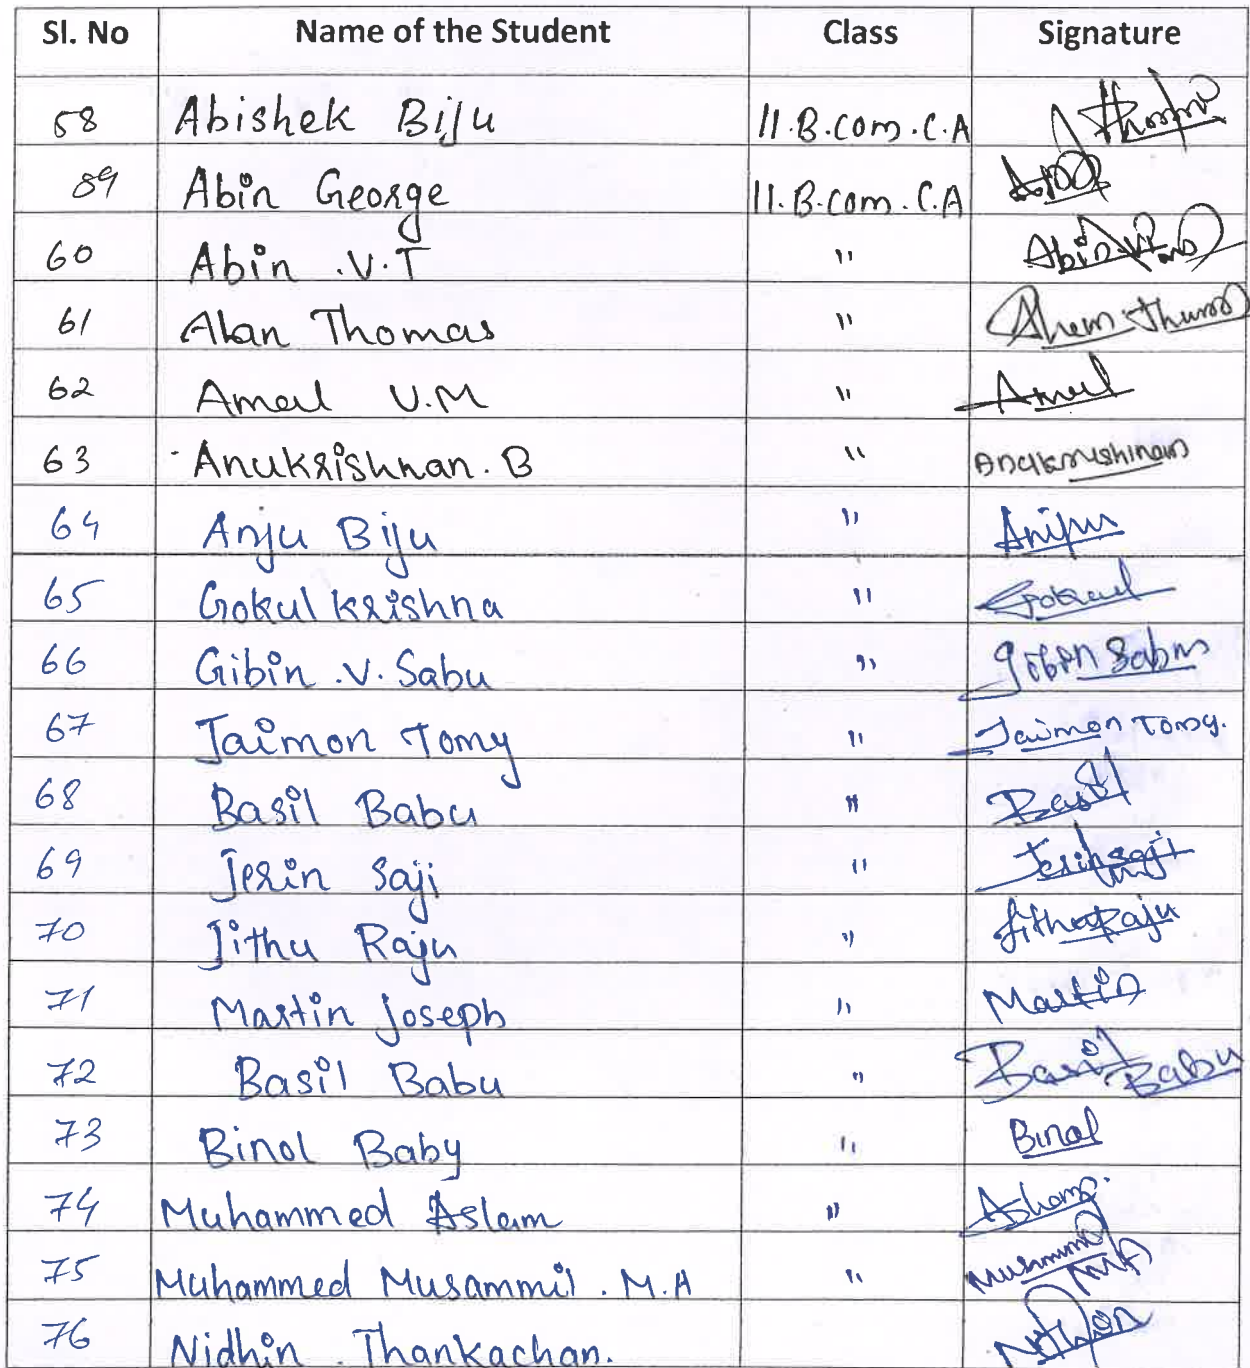 Sl. No Name of the Student Class Signature
58 Abishek Biju II.B.com.C.A
89 Abin George II.B.com.C.A
60 Abin .V.T "
61 Alan Thomas "
62 Amal V.M " Amal
63 Anukrishnan.B "
64 Anju Biju "
65 Gokul krishna " Gokul
66 Gibin .V. Sabu " Gibin Sabu
67 Jaimon Tomy " Jaimon Tomy.
68 Basil Babu " Basil
69 Jerin Saji " Jerin Saji
70 Jithu Raju " Jithu Raju
71 Martin Joseph " Martin
72 Basil Babu " Basil Babu
73 Binol Baby " Binol
74 Muhammed Aslam "
75 Muhammed Musammil . M.A "
76 Nidhin . Thankachan.